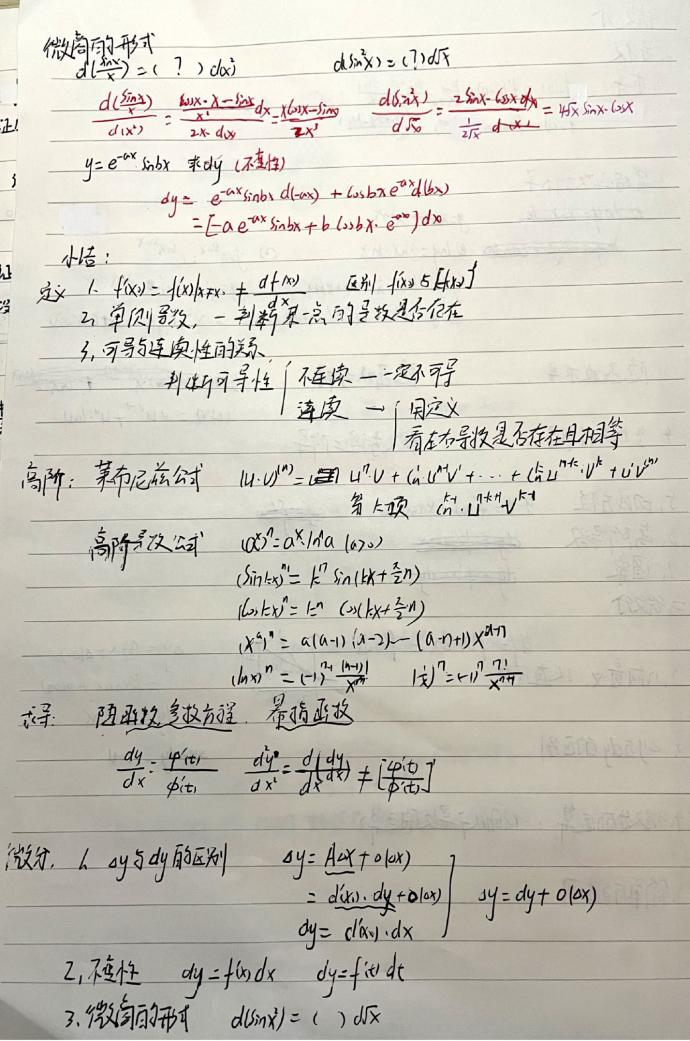 微商的形式
d(sinx/x) = ( ? ) d(x²)    d(sin²x) = (?) d√x
d(sinx/x)/d(x²) = (cosx·x - sinx)/x² dx / 2x·dx = (xcosx - sinx)/2x³    d(sin²x)/d√x = 2sinx·cosx dx / (1/2√x) dx = 4√x sinx·cosx
y = e^-ax sinbx 求dy (不变性)
dy = e^-ax sinbx d(-ax) + cosbx e^-ax d(bx)
= [-a e^-ax sinbx + b cosbx·e^-ax] dx
小结:
定义 1. f'(x₀) = f'(x)|x=x₀ ≠ df(x₀)/dx 区别 f'(x₀) 与 [f(x₀)]'
2, 单侧导数, 一 判断某一点的导数是否存在
3, 可导与连续性的关系
判断可导性 { 不连续 — 一定不可导
连续 → { 用定义
看左右导数是否存在且相等
高阶: 莱布尼兹公式 (u·v)⁽ⁿ⁾ = uⁿ·v + Cn¹ uⁿ⁻¹v' + ... + Cnᵏ uⁿ⁻ᵏ·vᵏ + u·v⁽ⁿ⁾
第k项 Cnᵏ⁻¹·uⁿ⁻ᵏ⁺¹·vᵏ⁻¹
高阶导数公式 (aˣ)ⁿ = aˣ·lnⁿa (a>0)
(sinkx)ⁿ = kⁿ sin(kx + π/2 n)
(coskx)ⁿ = kⁿ cos(kx + π/2 n)
(xᵃ)ⁿ = a(a-1)(a-2)--(a-n+1)xᵃ⁻ⁿ
(lnx)ⁿ = (-1)ⁿ⁻¹ (n-1)!/xⁿ    (1/x)ⁿ = (-1)ⁿ n!/xⁿ⁺¹
求导: 隐函数, 参数方程, 幂指函数
dy/dx = φ'(t)/ϕ'(t)    d²y/dx² = d/dx(dy/dx) ≠ [φ'(t)/ϕ'(t)]'
微分. 1. Δy与dy的区别 Δy = AΔx + o(Δx)
= d'(x₀)·dy + o(Δx) } Δy = dy + o(Δx)
dy = d'(x₀)·dx
2, 不变性 dy = f'(x) dx    dy = f'(t) dt
3. 微商的形式 d(sinx²) = ( ) d√x